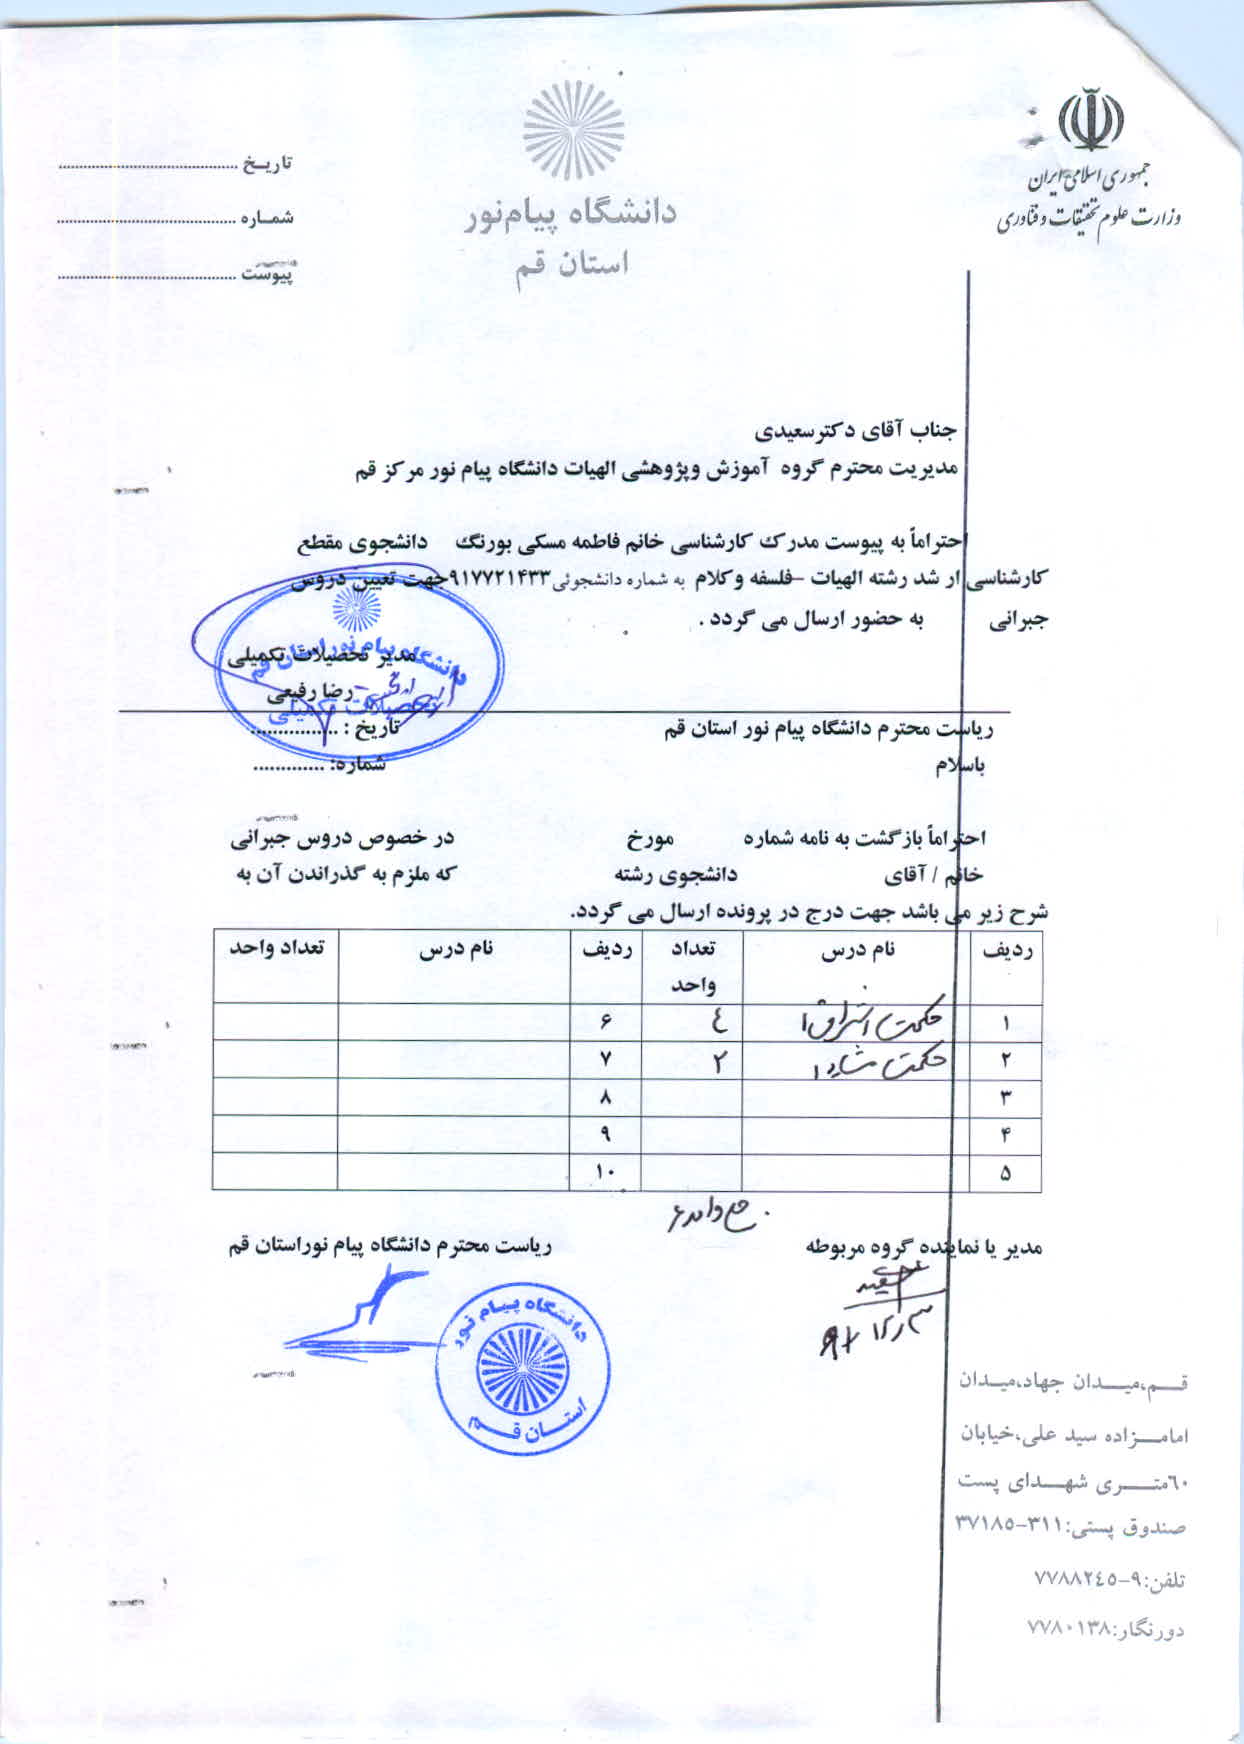 جمهوری اسلامی ایران
وزارت علوم تحقیقات و فناوری
دانشگاه پیام‌نور
استان قم
تاریـخ ..........................................
شمـاره ..........................................
پیوست ..........................................
جناب آقای دکترسعیدی
مدیریت محترم گروه آموزش وپژوهشی الهیات دانشگاه پیام نور مرکز قم
احتراماً به پیوست مدرک کارشناسی خانم فاطمه مسکی بورنگ دانشجوی مقطع
کارشناسی ار شد رشته الهیات –فلسفه وکلام به شماره دانشجوئی۹۱۷۷۲۱۴۳۳جهت تعیین دروس
جبرانی به حضور ارسال می گردد .
مدیر تحصیلات تکمیلی
رضا رفیعی
دانشگاه پیام نور استان قم
تحصیلات تکمیلی
ریاست محترم دانشگاه پیام نور استان قم تاریخ : ................
باسلام شماره: .............
احتراماً بازگشت به نامه شماره مورخ در خصوص دروس جبرانی
خانم / آقای دانشجوی رشته که ملزم به گذراندن آن به
شرح زیر می باشد جهت درج در پرونده ارسال می گردد.
ردیف نام درس تعداد واحد ردیف نام درس تعداد واحد
۱ حکمت اشراق ۱ ٤ ۶
۲ حکمت مشاء ۱ ۲ ۷
۳ ۸
۴ ۹
۵ ۱۰
واحد ۶
مدیر یا نماینده گروه مربوطه ریاست محترم دانشگاه پیام نوراستان قم
دانشگاه پیـام نور
استــان قــم
قــم،میــدان جهاد،میـدان
امامــزاده سید علی،خیابان
٦٠متــری شهــدای پست
صندوق پستی:۳۱۱-۳۷۱۸۵
تلفن:۹-۷۷۸۸۲٤۵
دورنگار:۷۷۸۰۱۳۸